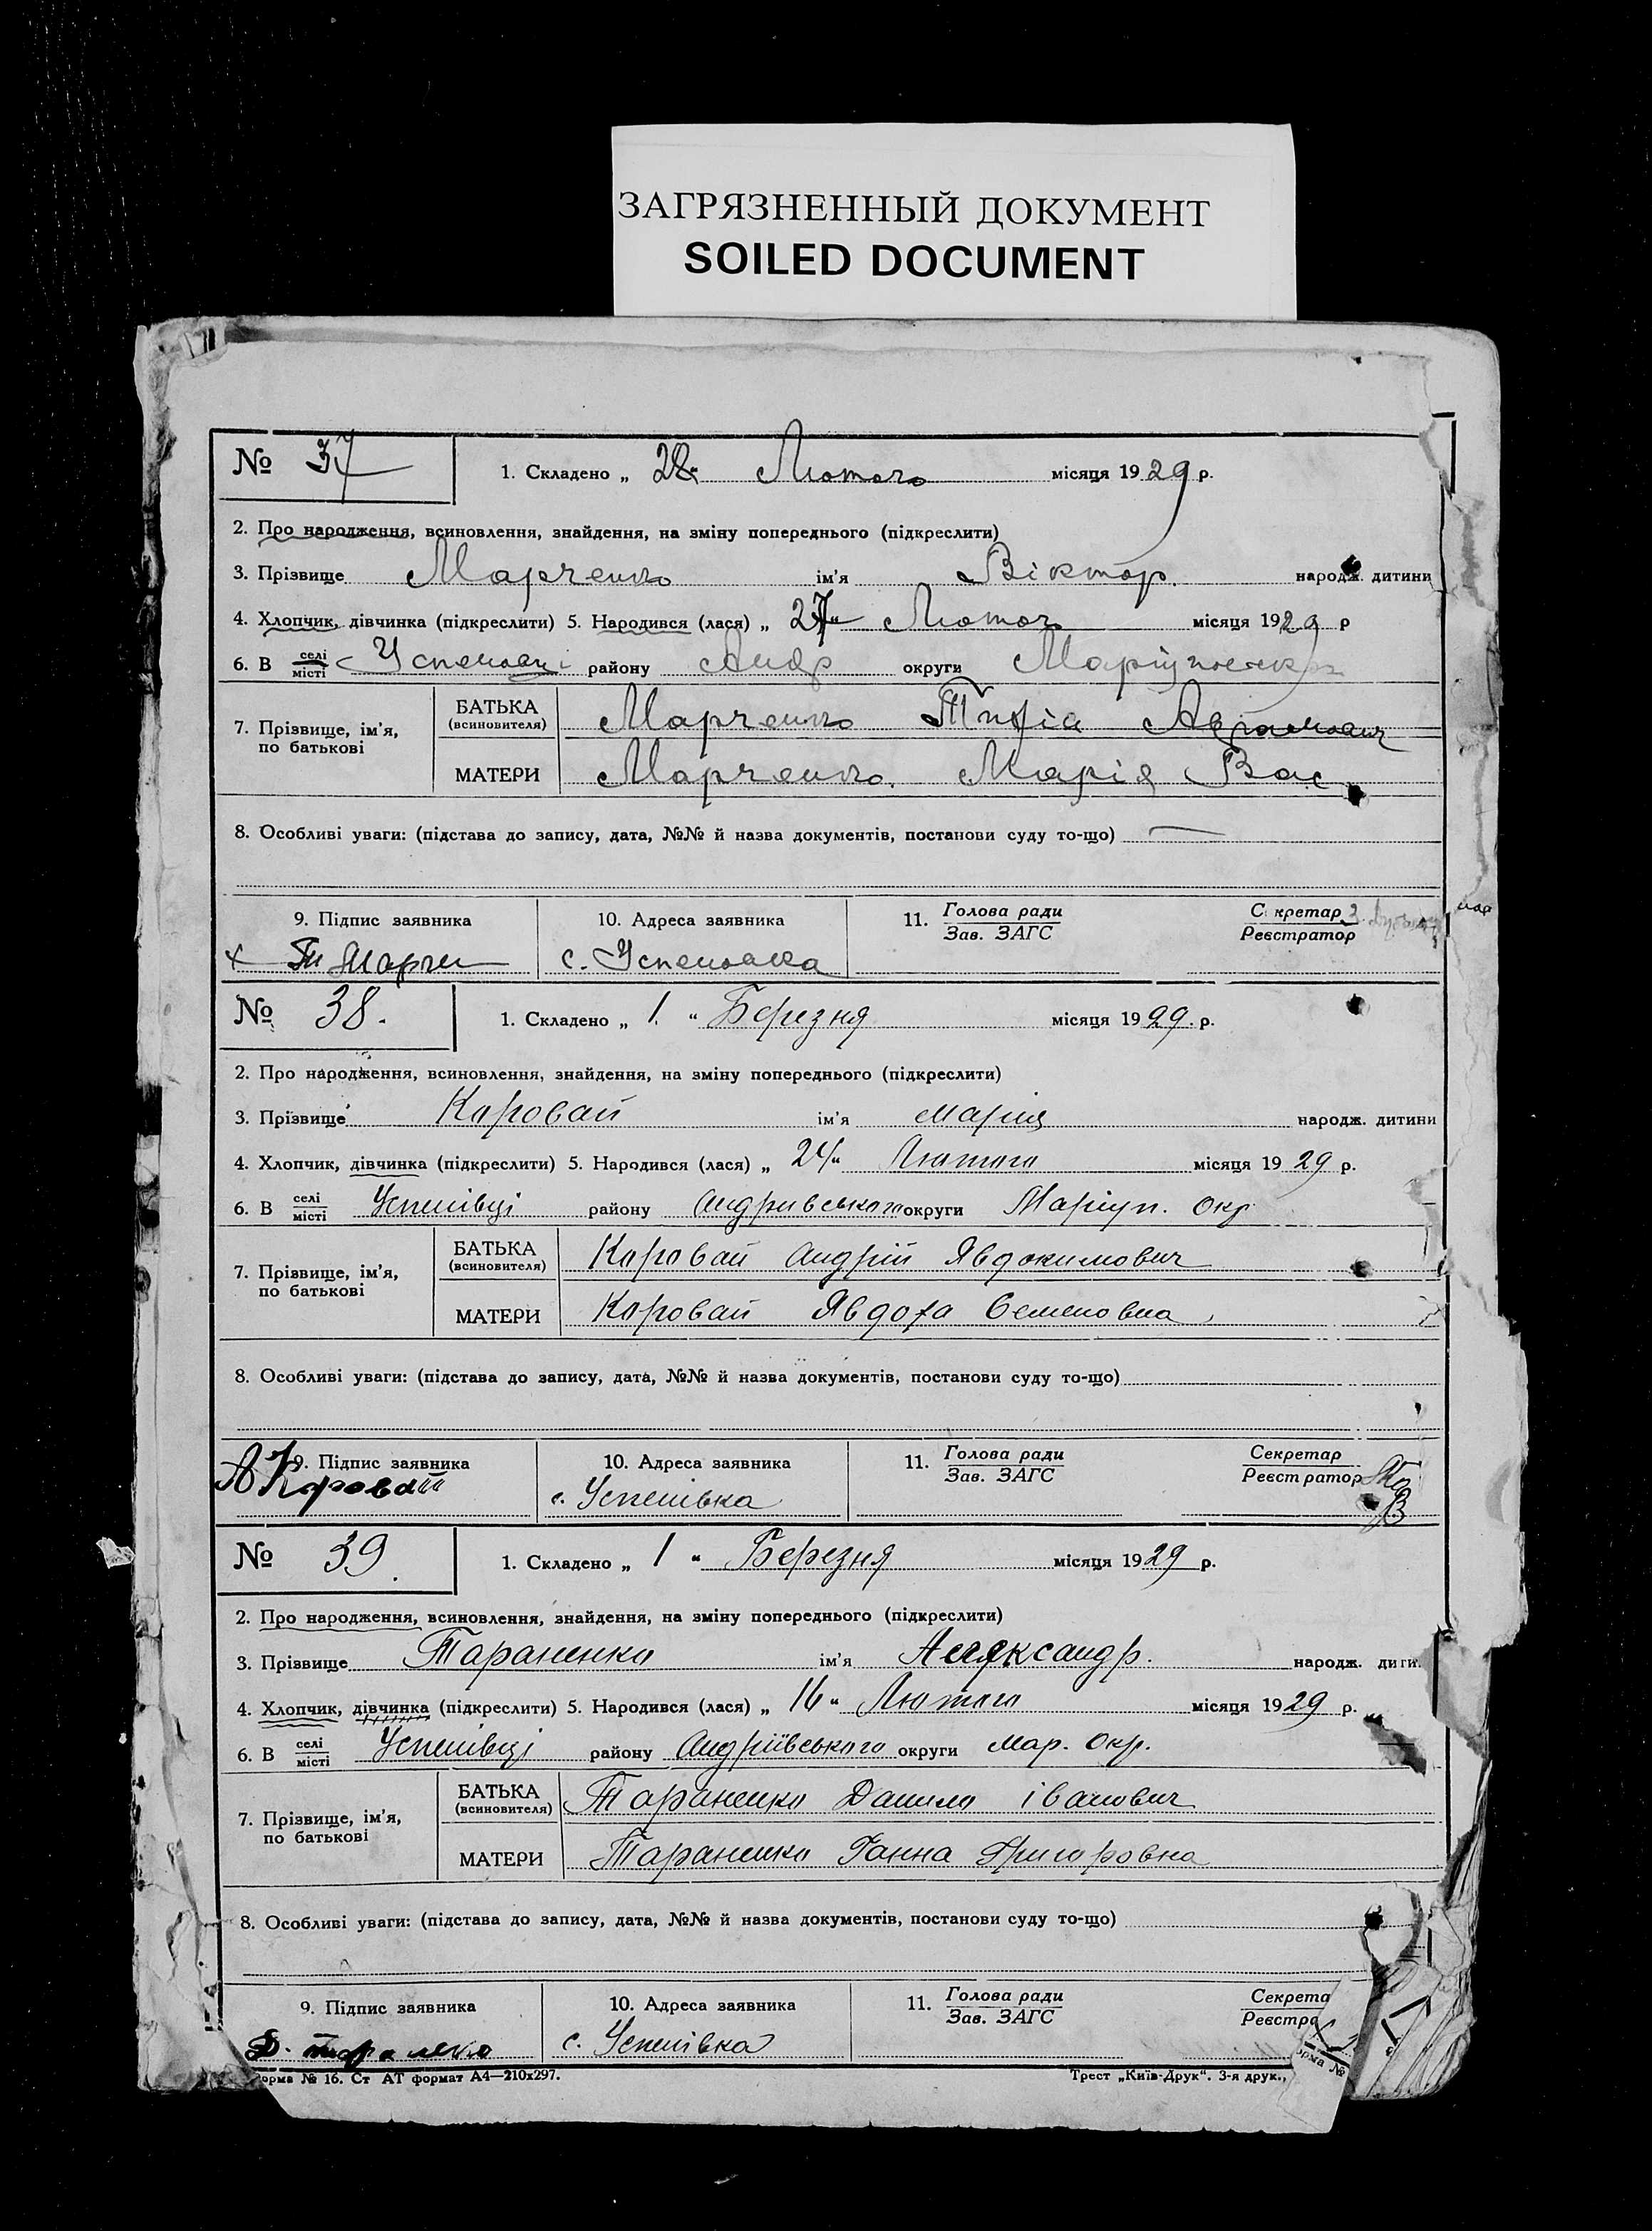 ЗАГРЯЗНЕННЫЙ ДОКУМЕНТ
SOILED DOCUMENT
№ 37
1. Складено „ 28 Лютого місяця 1929 р.
2. Про народження, всиновлення, знайдення, на зміну попереднього (підкреслити)
3. Прізвище Марченко ім'я Віктор. народж. дитини
4. Хлопчик, дівчинка (підкреслити) 5. Народився (лася) „ 27 " Лютого місяця 1929 р
6. В селі/місті району Андр округи
7. Прізвище, ім'я, по батькові
БАТЬКА (всиновителя) Марченко
МАТЕРИ Марченко. Марія Вас
8. Особливі уваги: (підстава до запису, дата, №№ й назва документів, постанови суду то-що) —
9. Підпис заявника 10. Адреса заявника 11. Голова ради/Зав. ЗАГС Секретар/Реєстратор
с. Успеновка
№ 38.
1. Складено „ 1. " Березня місяця 1929. р.
2. Про народження, всиновлення, знайдення, на зміну попереднього (підкреслити)
3. Прізвище Коровай ім'я Марія народж. дитини
4. Хлопчик, дівчинка (підкреслити) 5. Народився (лася) „ 24 " Лютого місяця 1929 р.
6. В селі/місті Успенівці району Андривського округи Маріуп. окр
7. Прізвище, ім'я, по батькові
БАТЬКА (всиновителя) Коровай Андрій Явдокимович
МАТЕРИ Коровай Явдоха Семеновна
8. Особливі уваги: (підстава до запису, дата, №№ й назва документів, постанови суду то-що)
9. Підпис заявника 10. Адреса заявника 11. Голова ради/Зав. ЗАГС Секретар/Реєстратор
А Коровай с. Успенівка
№ 39.
1. Складено „ 1 " Березня місяця 1929 р.
2. Про народження, всиновлення, знайдення, на зміну попереднього (підкреслити)
3. Прізвище Тараненко ім'я Александр. народж. дити.
4. Хлопчик, дівчинка (підкреслити) 5. Народився (лася) „ 16 " Лютого місяця 1929 р.
6. В селі/місті Успенівці району Андріївського округи Мар. Окр.
7. Прізвище, ім'я, по батькові
БАТЬКА (всиновителя) Тараненко Данило іванович
МАТЕРИ Тараненко Ганна Григоровна
8. Особливі уваги: (підстава до запису, дата, №№ й назва документів, постанови суду то-що)
9. Підпис заявника 10. Адреса заявника 11. Голова ради/Зав. ЗАГС Секрета/Реєстра
Д. с. Успенівка
орма № 16. Ст АТ формат А4—210х297. Трест „Київ-Друк". 3-я друк.,
орма №